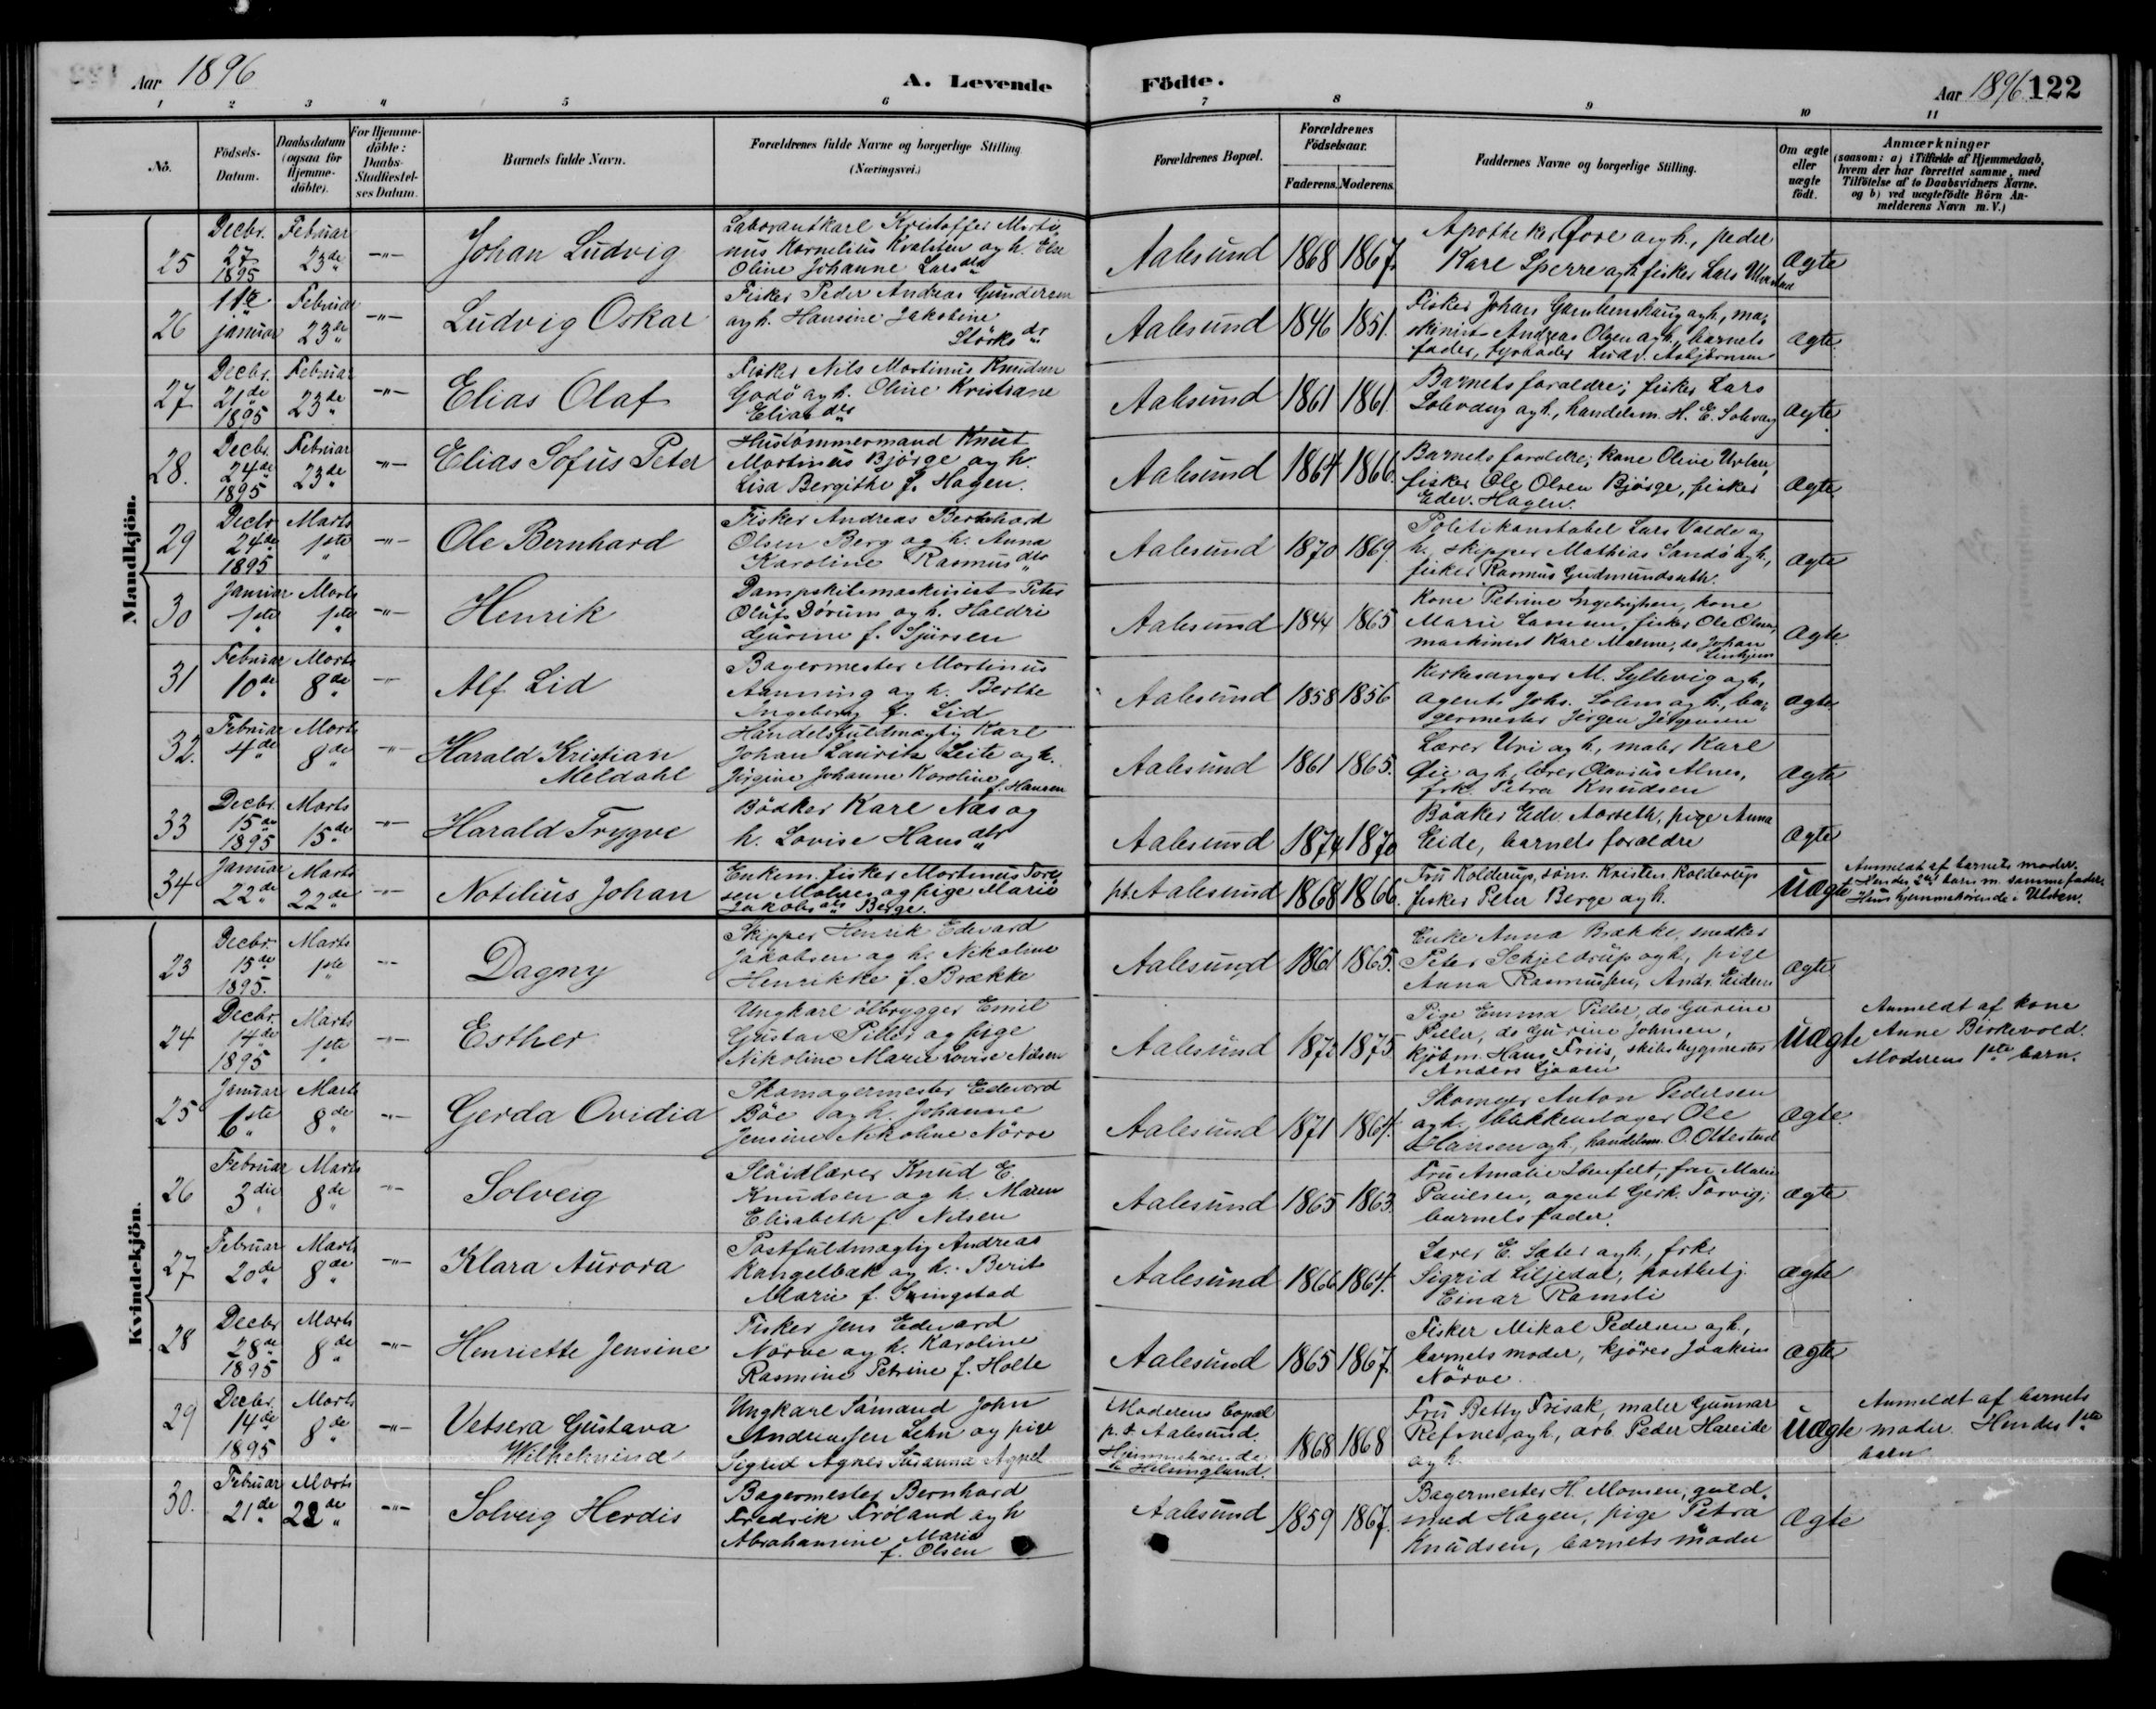 Aar 1896
A. Levende Födte.
Aar 1896 122
1 2 3 4 5 6 7 8 9 10 11
No.
Födsels-Datum.
Daabsdatum (ogsaa for Hjemme-döbte).
For Hjemme-döbte: Daabs-Stadfæstel-ses Datum.
Barnets fulde Navn.
Forældrenes fulde Navne og borgerlige Stilling (Næringsvei.)
Forældrenes Bopæl.
Forældrenes Födselsaar.
Faderens. Moderens.
Faddernes Navne og borgerlige Stilling.
Om ægte eller uægte født.
Anmærkninger
(saasom: a) i Tilfælde af Hjemmedaab,
hvem der har forrettet samme, med
Tilföielse af to Daabsvidners Navne.
og b) ved uægtefödte Börn An-
melderens Navn m. V.)
Mandkjön.
25 Decbr. 27 1895 Februar 23de -"- Johan Ludvig
Laborantkarl Kristoffer Marti-
nus Kornelius Kvalsten og h. Else
Oline Johanne Larsdtr
Aalesund 1868 1867.
Apotheker Øvre og h., pedel
Karl Sperre og h. fisker Lars Ulvestad
ægte
26 11te januar Februar 23de -"- Ludvig Oskar
Fisker Peder Andreas Gundersen
og h. Hansine Jakobine
Störksdr
Aalesund 1846 1851.
Fisker Johan Gamlemshaug og h., ma-
skinist Andreas Olsen og h., barnets
fader, fyrböder Ludv. Asbjørnsen
ægte
27 Decbr. 21de 1895 Februar 23de -"- Elias Olaf
Fisker Nils Martinus Knudsen
Godö og h. Oline Kristiane
Eliasdtr
Aalesund 1861 1861.
Barnets foraldre; fisker Lars
Solevaag og h., handelsm. H. E. Solevaag
ægte
28. Decbr. 24de 1895 Februar 23de -"- Elias Sofus Peter
Hustömmermand Knut
Martinus Bjørge og h.
Lisa Bergithe f. Hagen.
Aalesund 1864 1866.
Barnets foraldre; kone Olive
fisker Ole Olsen Bjørge, fisker
Edv. Hagen.
ægte
29 Decbr. 24de 1895 Marts 1ste -"- Ole Bernhard
Fisker Andreas Bernhard
Olsen Berg og h. Anna
Karoline Rasmusdtr
Aalesund 1870 1869.
Politikonstabel Lars Valde og
h., skipper Mathias Sandö og h.,
fisker Rasmus Gudmundseth.
ægte
30 Januar 1ste Marts 1ste -"- Henrik
Dampskibsmaskinist Peter
Oluf Dörum og h. Haldri
Gurine f. Sjursen
Aalesund 1844 1865
Kone Petrine Ingebrigtsen, kone
Marie Larsen, fisker Ole Olsen,
maskinist Karl Malme, do Johan
ægte.
31 Februar 10de Marts 8de -"- Alf Lid
Bagermester Martinus
Aanning og h. Berthe
Ingeborg f. Lid
Aalesund 1858 1856
Kirkesanger M. Syltevig og h.,
agent Johs. Solem og h., ba-
germester Jørgen Jørgensen
ægte
32. Februar 4de Marts 8de -"- Harald Kristian Meldahl
Handelsfuldmægtig Karl
Johan Laurits Leite og h.
Jörgine Johanne Karoline
f. Hansen
Aalesund 1861 1865.
Lærer Uri og h., maler Karl
og h., lærer Olavius Alnes,
frk. Petra Knudsen
ægte
33 Decbr. 15de 1895 Marts 15de -"- Harald Trygve
Bödker Karl Næs og
h. Lovise Hansdtr
Aalesund 1874 1870
Bödker Edv. Aarseth, pige Anna
Eide, barnets foraldre
ægte
34 Januar 22de Marts 22de -"- Notilius Johan
Enkem. fisker Martinus Tore-
sen Molnes og pige Marie
Jakobsdtr Berge.
pt. Aalesund 1868 1866.
Fru Kolderup, söm. Kristen Kolderup
fisker Peter Berge og h.
uægte
Anmeldt af barnets moder.
Hendes 2det barn m. samme fader.
Hun hjemmehörende i Ulsten.
Kvindekjön.
23 Decbr. 15de 1895. Marts 1ste -"- Dagny
Skipper Henrik Edvard
Jakobsen og h. Nikoline
Henrikke f. Brække
Aalesund 1861 1865.
Enke Anna Brække, snedker
Peter Schjeldrup og h., pige
Anna Rasmussen, Andr. Eidem
ægte
24 Decbr. 14de 1895 Marts 1ste -"- Esther
Ungkarl ölbrygger Emil
Gustav Piller og pige
Nikoline Marie Lovise Nilsen
Aalesund 1872 1875.
Pige Emma Piller, do Gurine
Piller, do Gurine Johnsen,
kjöbm. Hans Friis, skibsbygmester
Anders Liaaen
uægte
Anmeldt af kone
Anne Birkevold.
Moderens 1ste barn.
25 Januar 6te Marts 8de -"- Gerda Ovidia
Skomagermester Edvard
Böe og h. Johanne
Jensine Nikoline Nörve
Aalesund 1871 1864.
Skomager Anton Pedersen
og h. blikkenslager Ole
Hansen og h., handelsm. O. Ottestad
ægte.
26 Februar 3die Marts 8de -"- Solveig
Slöidlærer Knud E.
Knudsen og h. Maren
Elisabeth f. Nilsen
Aalesund 1865 1863.
Fru Amalie Ibenfelt, fru Malie
Paulsen, agent Gerh. Torvig,
barnets fader.
ægte
27 Februar 20de Marts 8de -"- Klara Aurora
Postfuldmægtig Andreas
Kangelbak og h. Berit
Marie f. Svingstad
Aalesund 1866 1864.
Lærer E. Sæter og h., frk.
Sigrid Liljedal, postbetj.
Einar Ramsli
ægte
28 Decbr 28de 1895 Marts 8de -"- Henriette Jensine
Fisker Jens Edvard
Nörve og h. Karoline
Rasmine Petrine f. Holte
Aalesund 1865 1867.
Fisker Mikal Pedersen og h.,
barnets moder, kjörer Joakim
Nörve.
ægte
29 Decbr. 14de 1895 Marts 8de -"- Vetsera Gustava Wilhelmina
Ungkarl sömand John
Andreassen Lehn og pige
Sigrid Agnes Susanna Agnel
Moderens bopæl
p. t. Aalesund.
Hjemmehörende
i Helsingland.
1868 1868
Fru Betty Frisak, maler Gunnar
Refsnes og h., arb. Peder Hareide
og h.
uægte
Anmeldt af barnets
moder. Hendes 1ste
barn
30. Februar 21de Marts 22de -"- Solveig Herdis
Bagermester Bernhard
Fredrik Fröland og h
Abrahamine Marie
f. Olsen
Aalesund 1859 1867.
Bagermester H. Monsen, guld-
smed Hagen, pige Petra
Knudsen, barnets moder
ægte